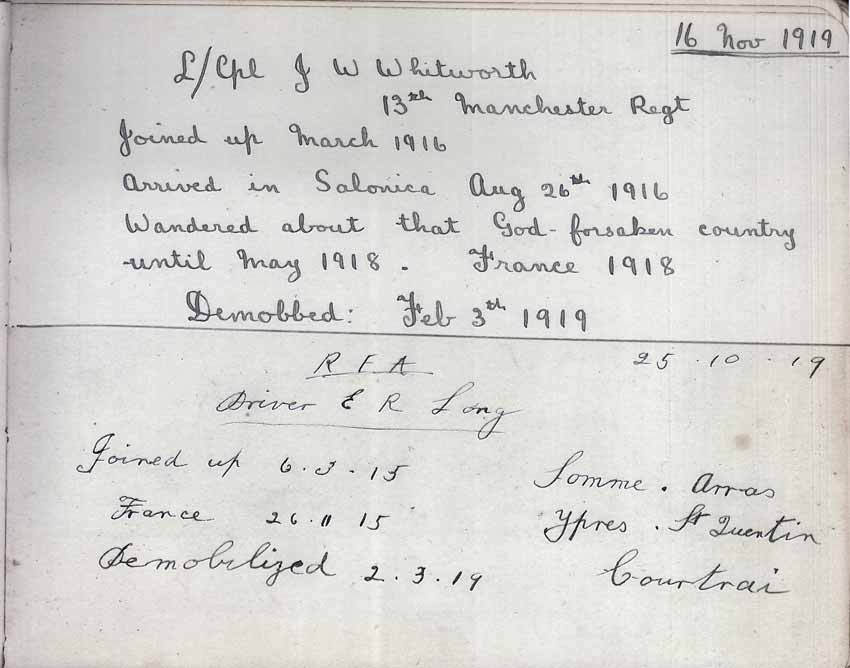 16 Nov 1919
L/Cpl J W Whitworth
13th Manchester Regt
Joined up March 1916
Arrived in Salonica Aug 26th 1916
Wandered about that God-forsaken country
until May 1918. France 1918
Demobbed: Feb 3th 1919
R F A 25.10.19
Driver E R Long
Joined up 6.3.15
Somme. Arras
France 26.11 15
Ypres. St Quentin
Demobilized 2.3.19
Courtrai